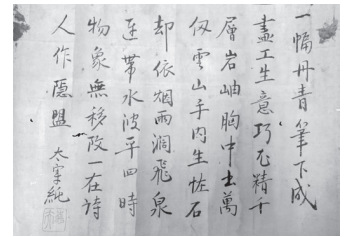 一幅丹青筆下成
畫工生意巧尤精千
層岩岫胸中出萬
仭雲山手内生怪石
却依烟雨潤飛泉
連帶水波平四時
物象無移改一在詩
人作隠盟 太宰純